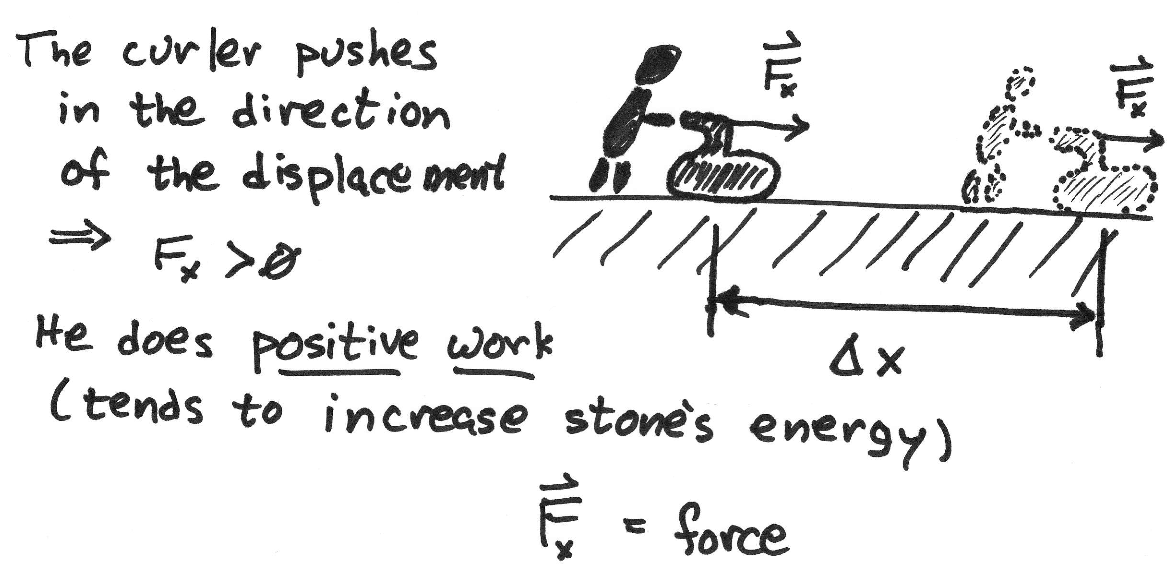 The curler pushes
in the direction
of the displacement
⇒ Fₓ > 0
He does positive work
(tends to increase stone's energy)
F⃗ₓ
F⃗ₓ
Δx
F⃗ₓ = force